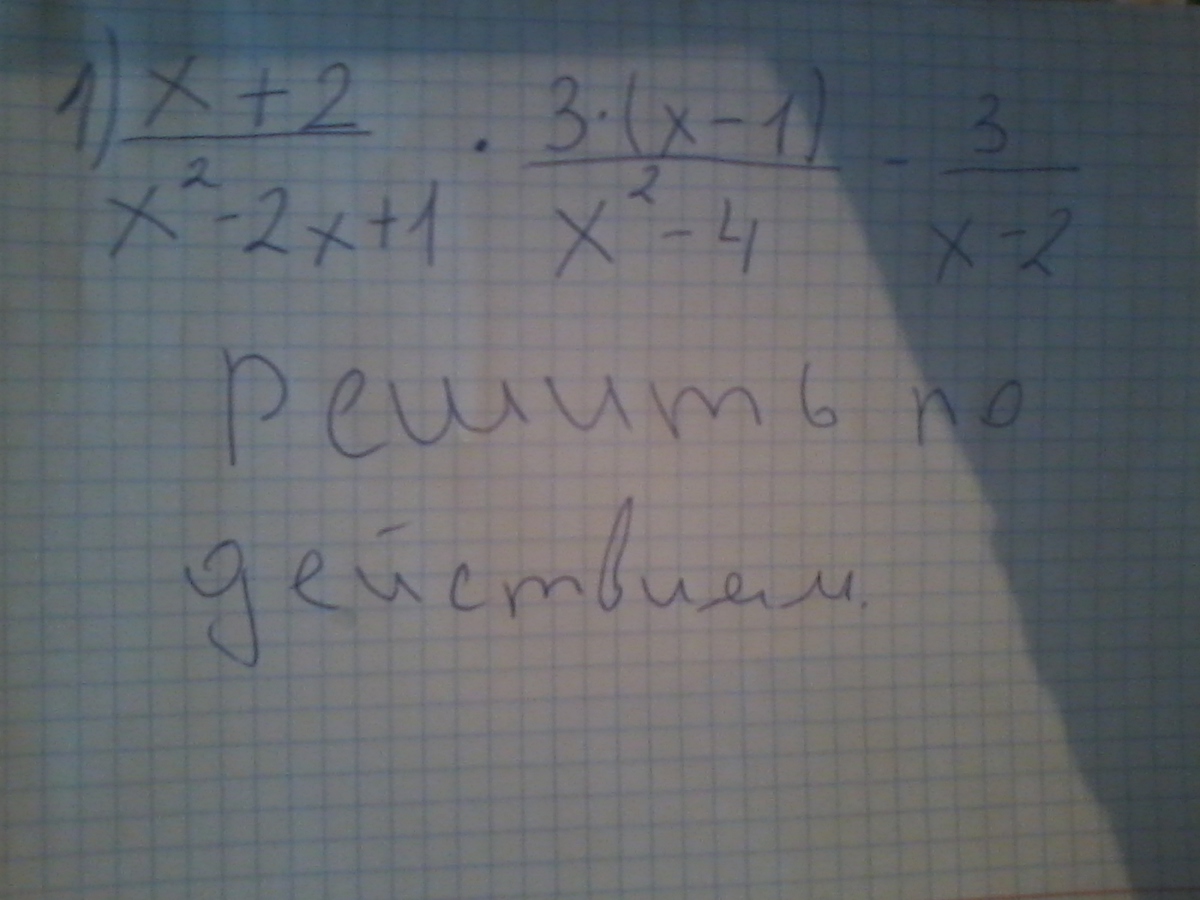 1) x + 2 / x² - 2x + 1 · 3·(x - 1) / x² - 4 - 3 / x - 2
Решить по
действиям.